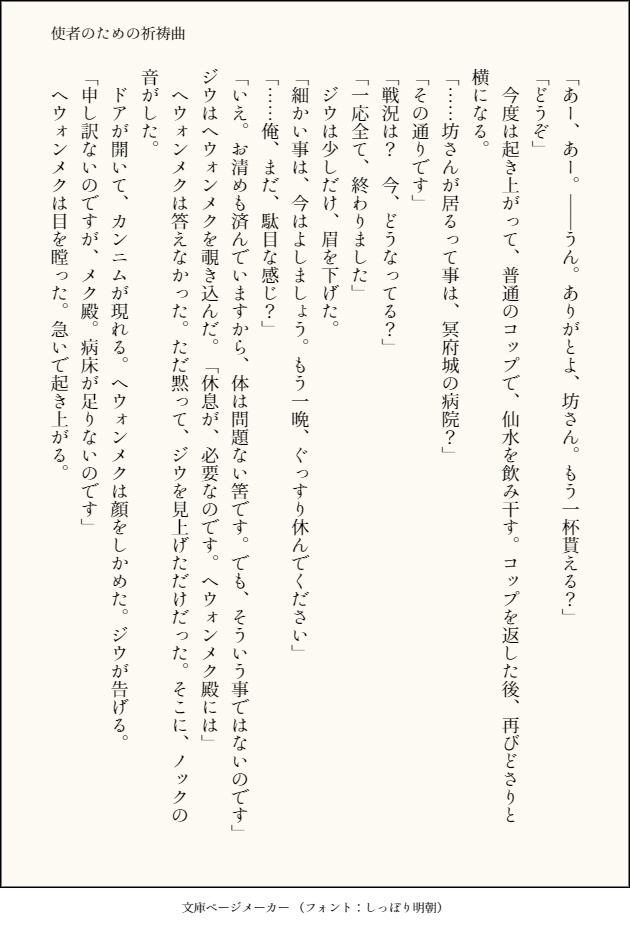 使者のための祈祷曲
「あー、あー。――うん。ありがとよ、坊さん。もう一杯貰える？」
「どうぞ」
　今度は起き上がって、普通のコップで、仙水を飲み干す。コップを返した後、再びどさりと
横になる。
「……坊さんが居るって事は、冥府城の病院？」
「その通りです」
「戦況は？　今、どうなってる？」
「一応全て、終わりました」
　ジウは少しだけ、眉を下げた。
「細かい事は、今はよしましょう。もう一晩、ぐっすり休んでください」
「……俺、まだ、駄目な感じ？」
「いえ。お清めも済んでいますから、体は問題ない筈です。でも、そういう事ではないのです」
ジウはヘウォンメクを覗き込んだ。「休息が、必要なのです。ヘウォンメク殿には」
　ヘウォンメクは答えなかった。ただ黙って、ジウを見上げただけだった。そこに、ノックの
音がした。
　ドアが開いて、カンニムが現れる。ヘウォンメクは顔をしかめた。ジウが告げる。
「申し訳ないのですが、メク殿。病床が足りないのです」
　ヘウォンメクは目を瞠った。急いで起き上がる。
文庫ページメーカー（フォント：しっぽり明朝）